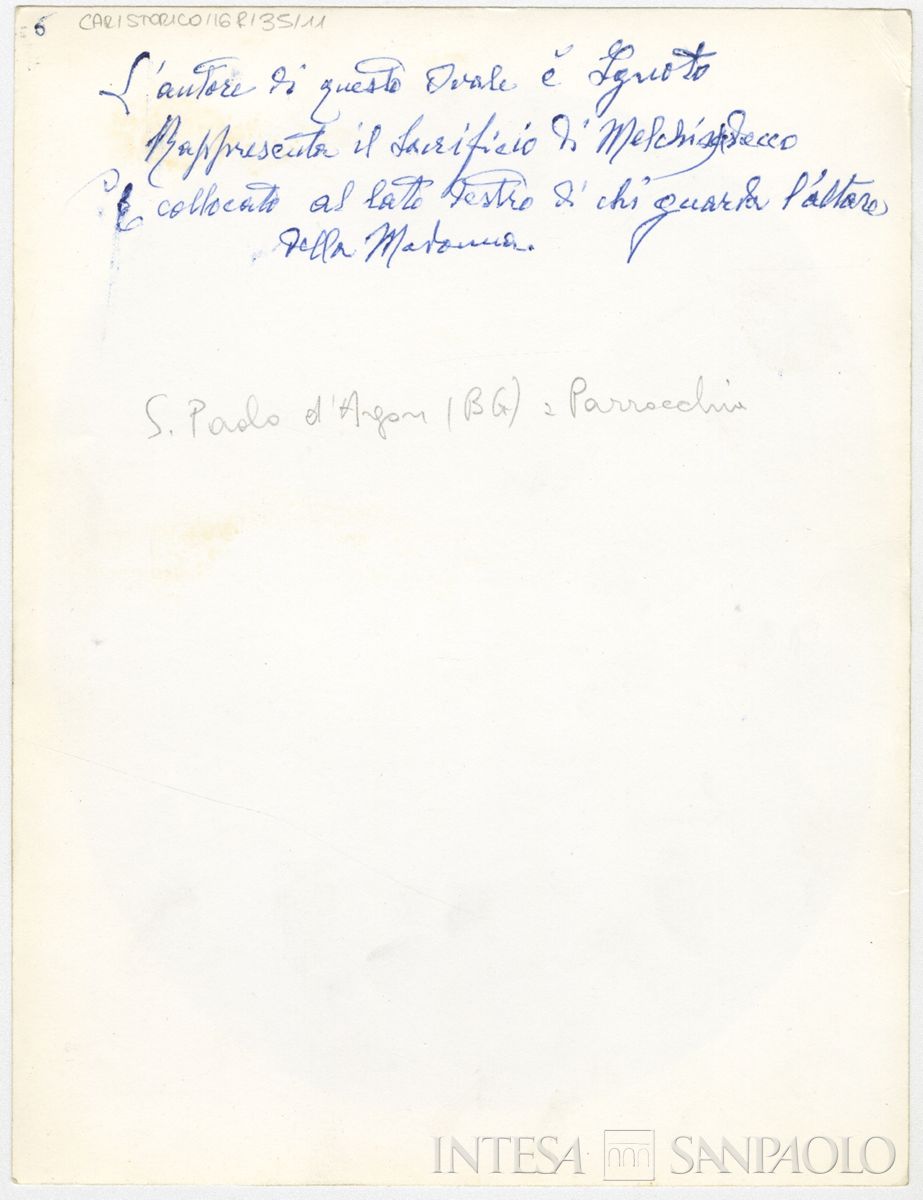 6 CARISTORICO/16R/35/11
L'autore di questo ovale è Ignoto
Rappresenta il Sacrificio di Melchisedecco
È collocato al lato destro di chi guarda l'altare
della Madonna.
S. Paolo d'Argon (BG) = Parrocchia
INTESA SANPAOLO